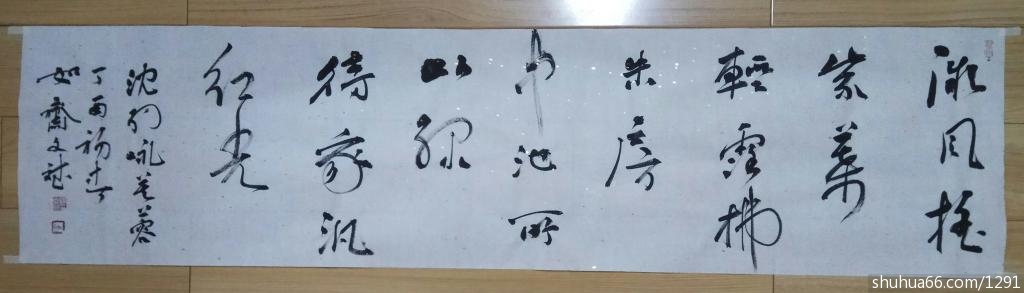 微風摇
紫葉
輕露拂
朱房
中池所
以綠
待我汎
紅光
沈約咏芙蓉
丁酉初
如齋文斌
shuhua66.com/1291